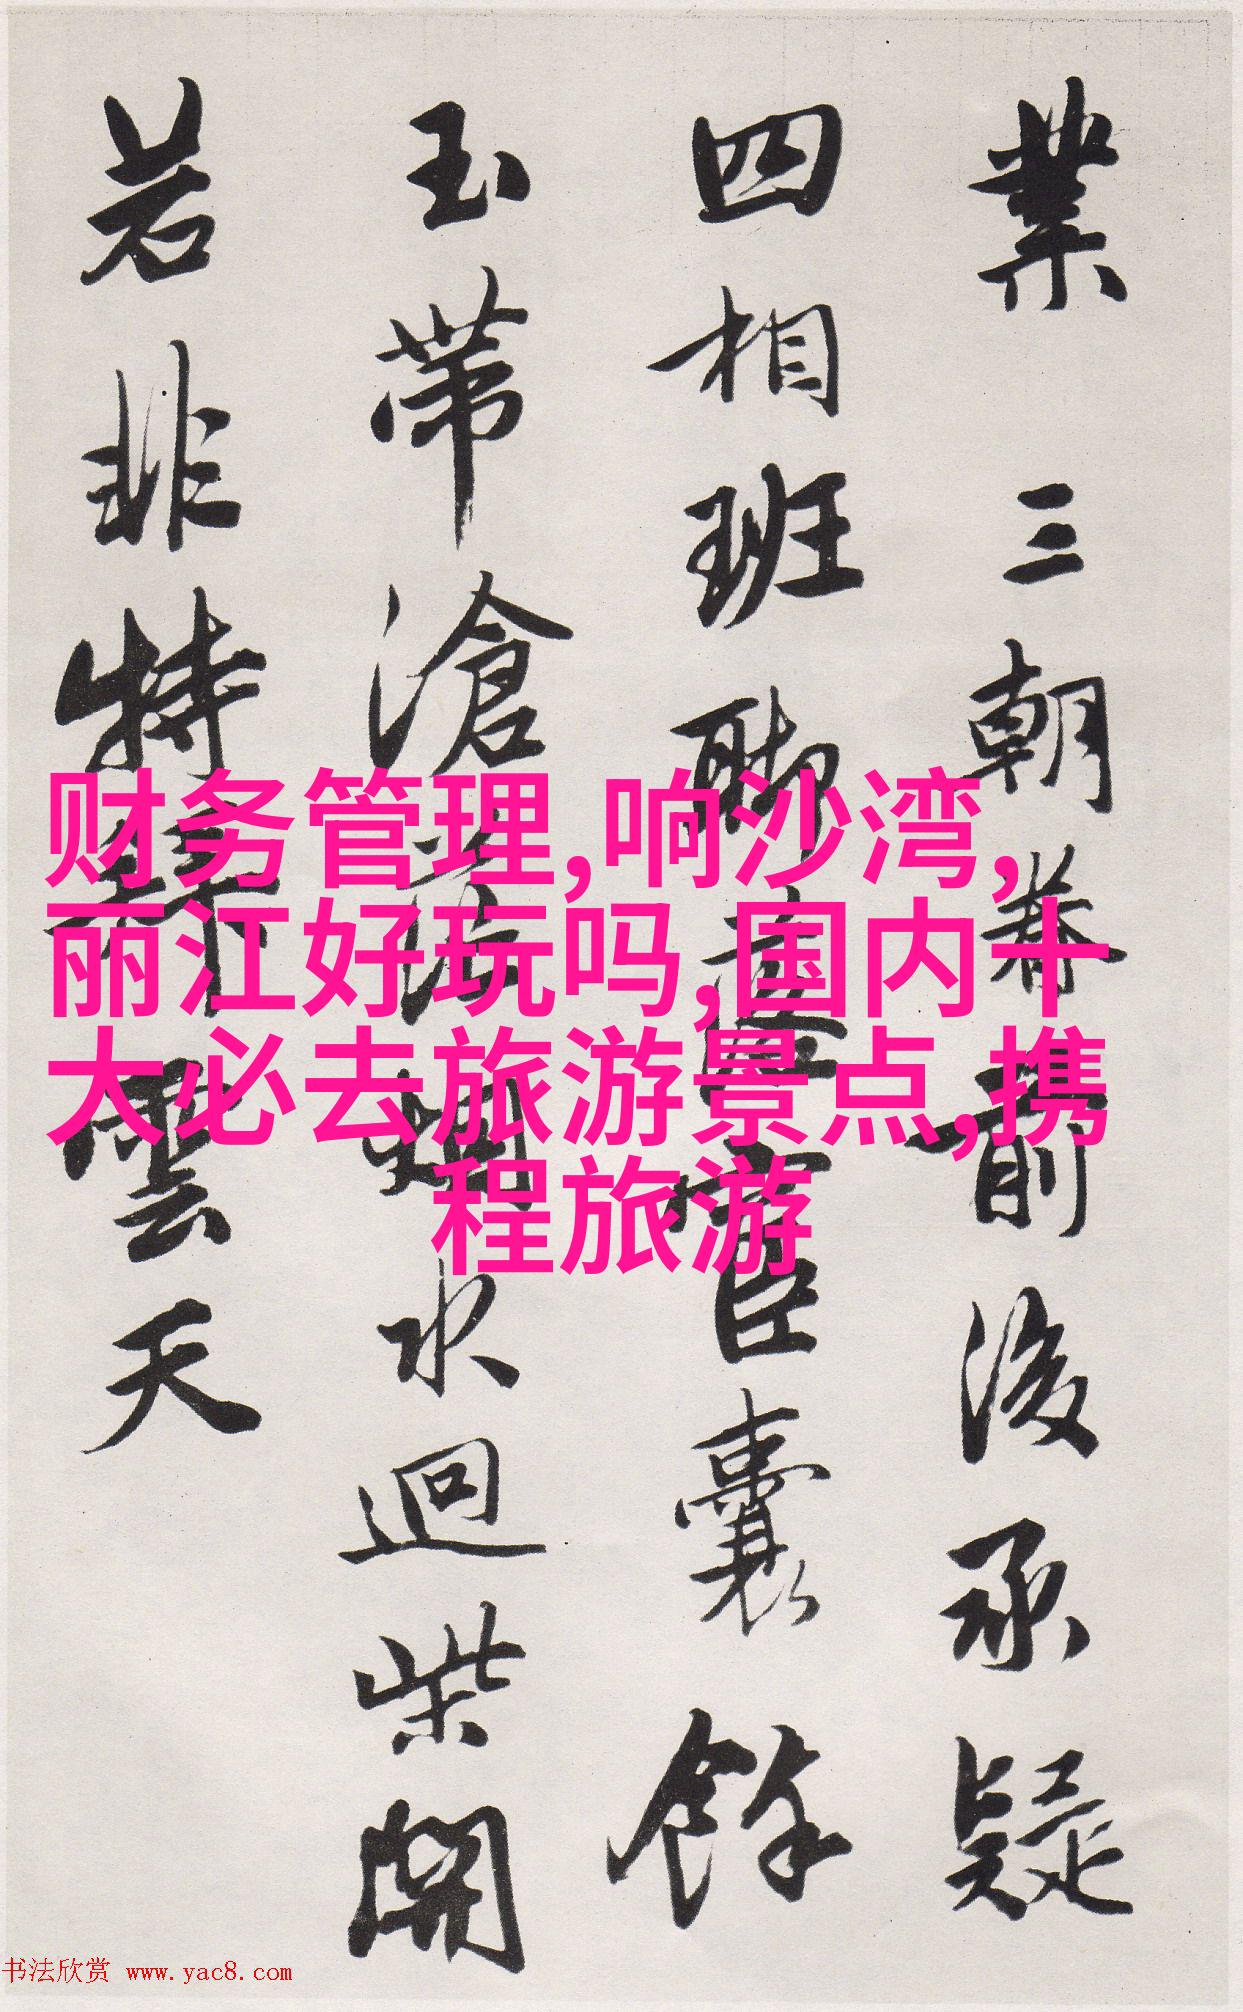 業三朝眷前後承疑
四相班聯臣囊餘
玉帶滄水迥柴開
若非特雲天
财务管理,响沙湾,
丽江好玩吗,国内十
大必去旅游景点,携
程旅游
书法欣赏 www.yac8.com